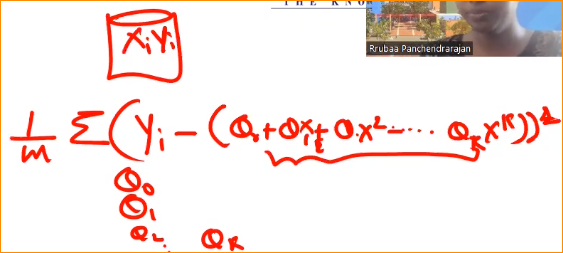 THE KNO
Rrubaa Panchendrarajan
xᵢ yᵢ
1/m Σ(yᵢ − (θ₀ + θx₁ + θ.x² − ⋯ θₖxᴷ))²
θ₀
θ₁
θ₂. θₖ